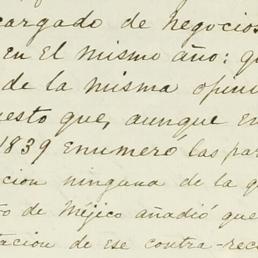 cargado de negocios
en el mismo año: qu
de la misma opini
uesto que, aunque en
1839 enumeró las par
cion ninguna de la q
to de Méjico añadió que
tacion de ese contra-rec